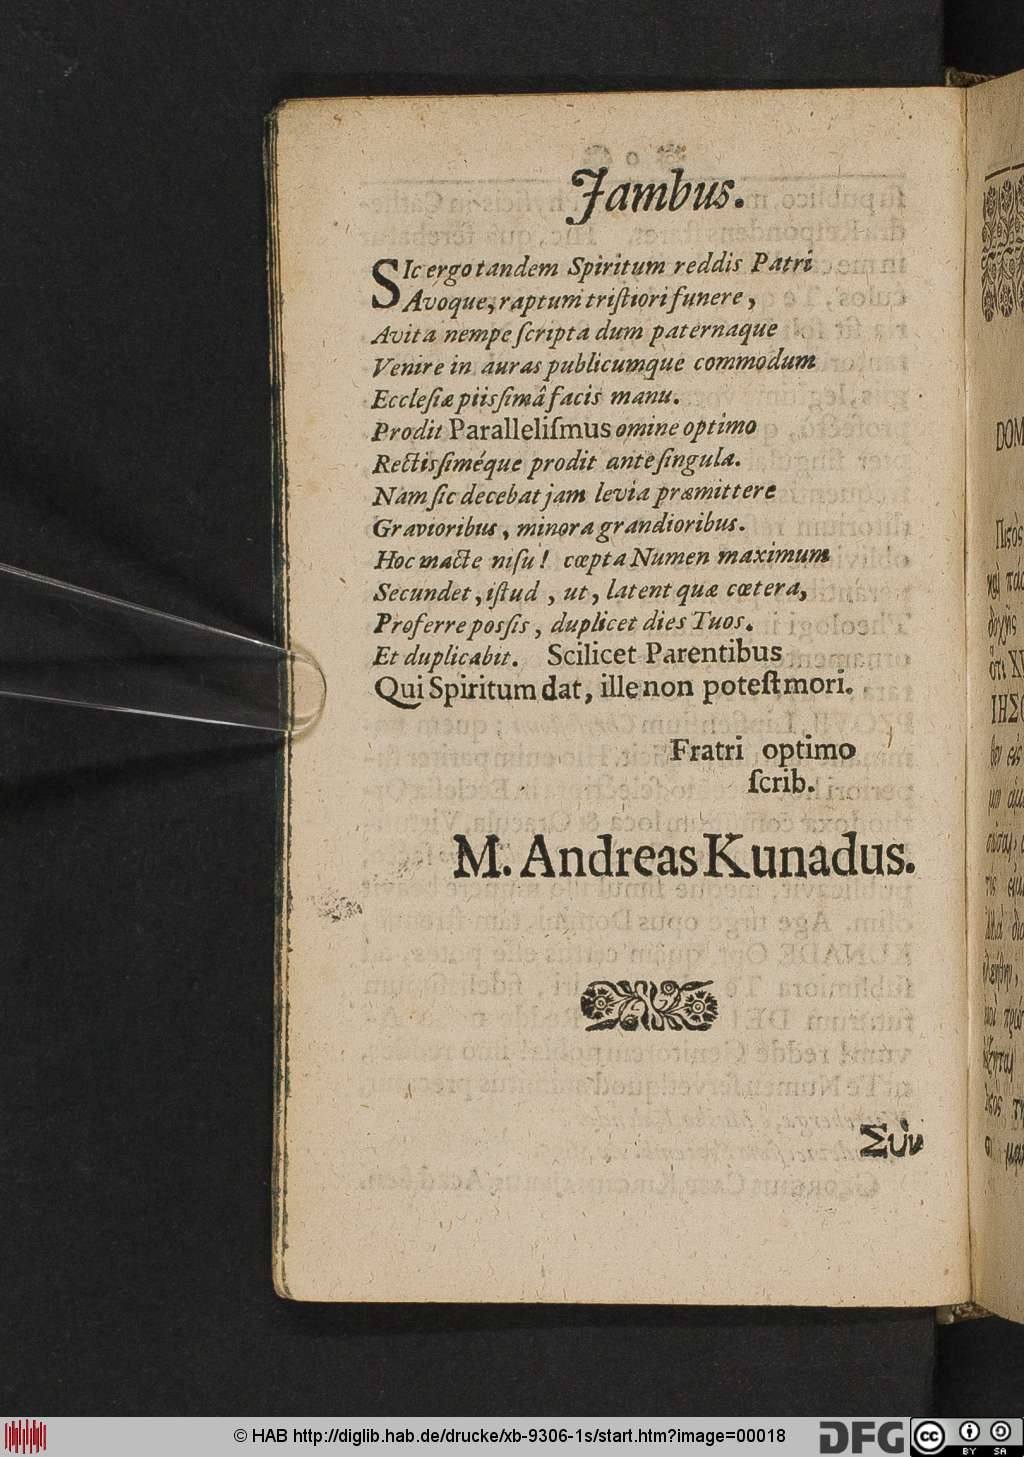 Jambus.
SIc ergo tandem Spiritum reddis Patri
Avoque, raptum triſtiori funere,
Avita nempe ſcripta dum paternaque
Venire in auras publicumque commodum
Eccleſiæ piisſimâ facis manu.
Prodit Paralleliſmus omine optimo
Rectisſiméque prodit ante ſingula.
Nam ſic decebat jam levia præmittere
Gravioribus, minora grandioribus.
Hoc macte niſu! cœpta Numen maximum
Secundet, iſtud, ut, latent quæ cœtera,
Proferre posſis, duplicet dies Tuos.
Et duplicabit. Scilicet Parentibus
Qui Spiritum dat, ille non poteſt mori.
Fratri optimo
ſcrib.
M. Andreas Kunadus.
Σὺν
DOM
Πιςὸς
ΙΗΣΟ
© HAB http://diglib.hab.de/drucke/xb-9306-1s/start.htm?image=00018
DFG
cc
BY SA